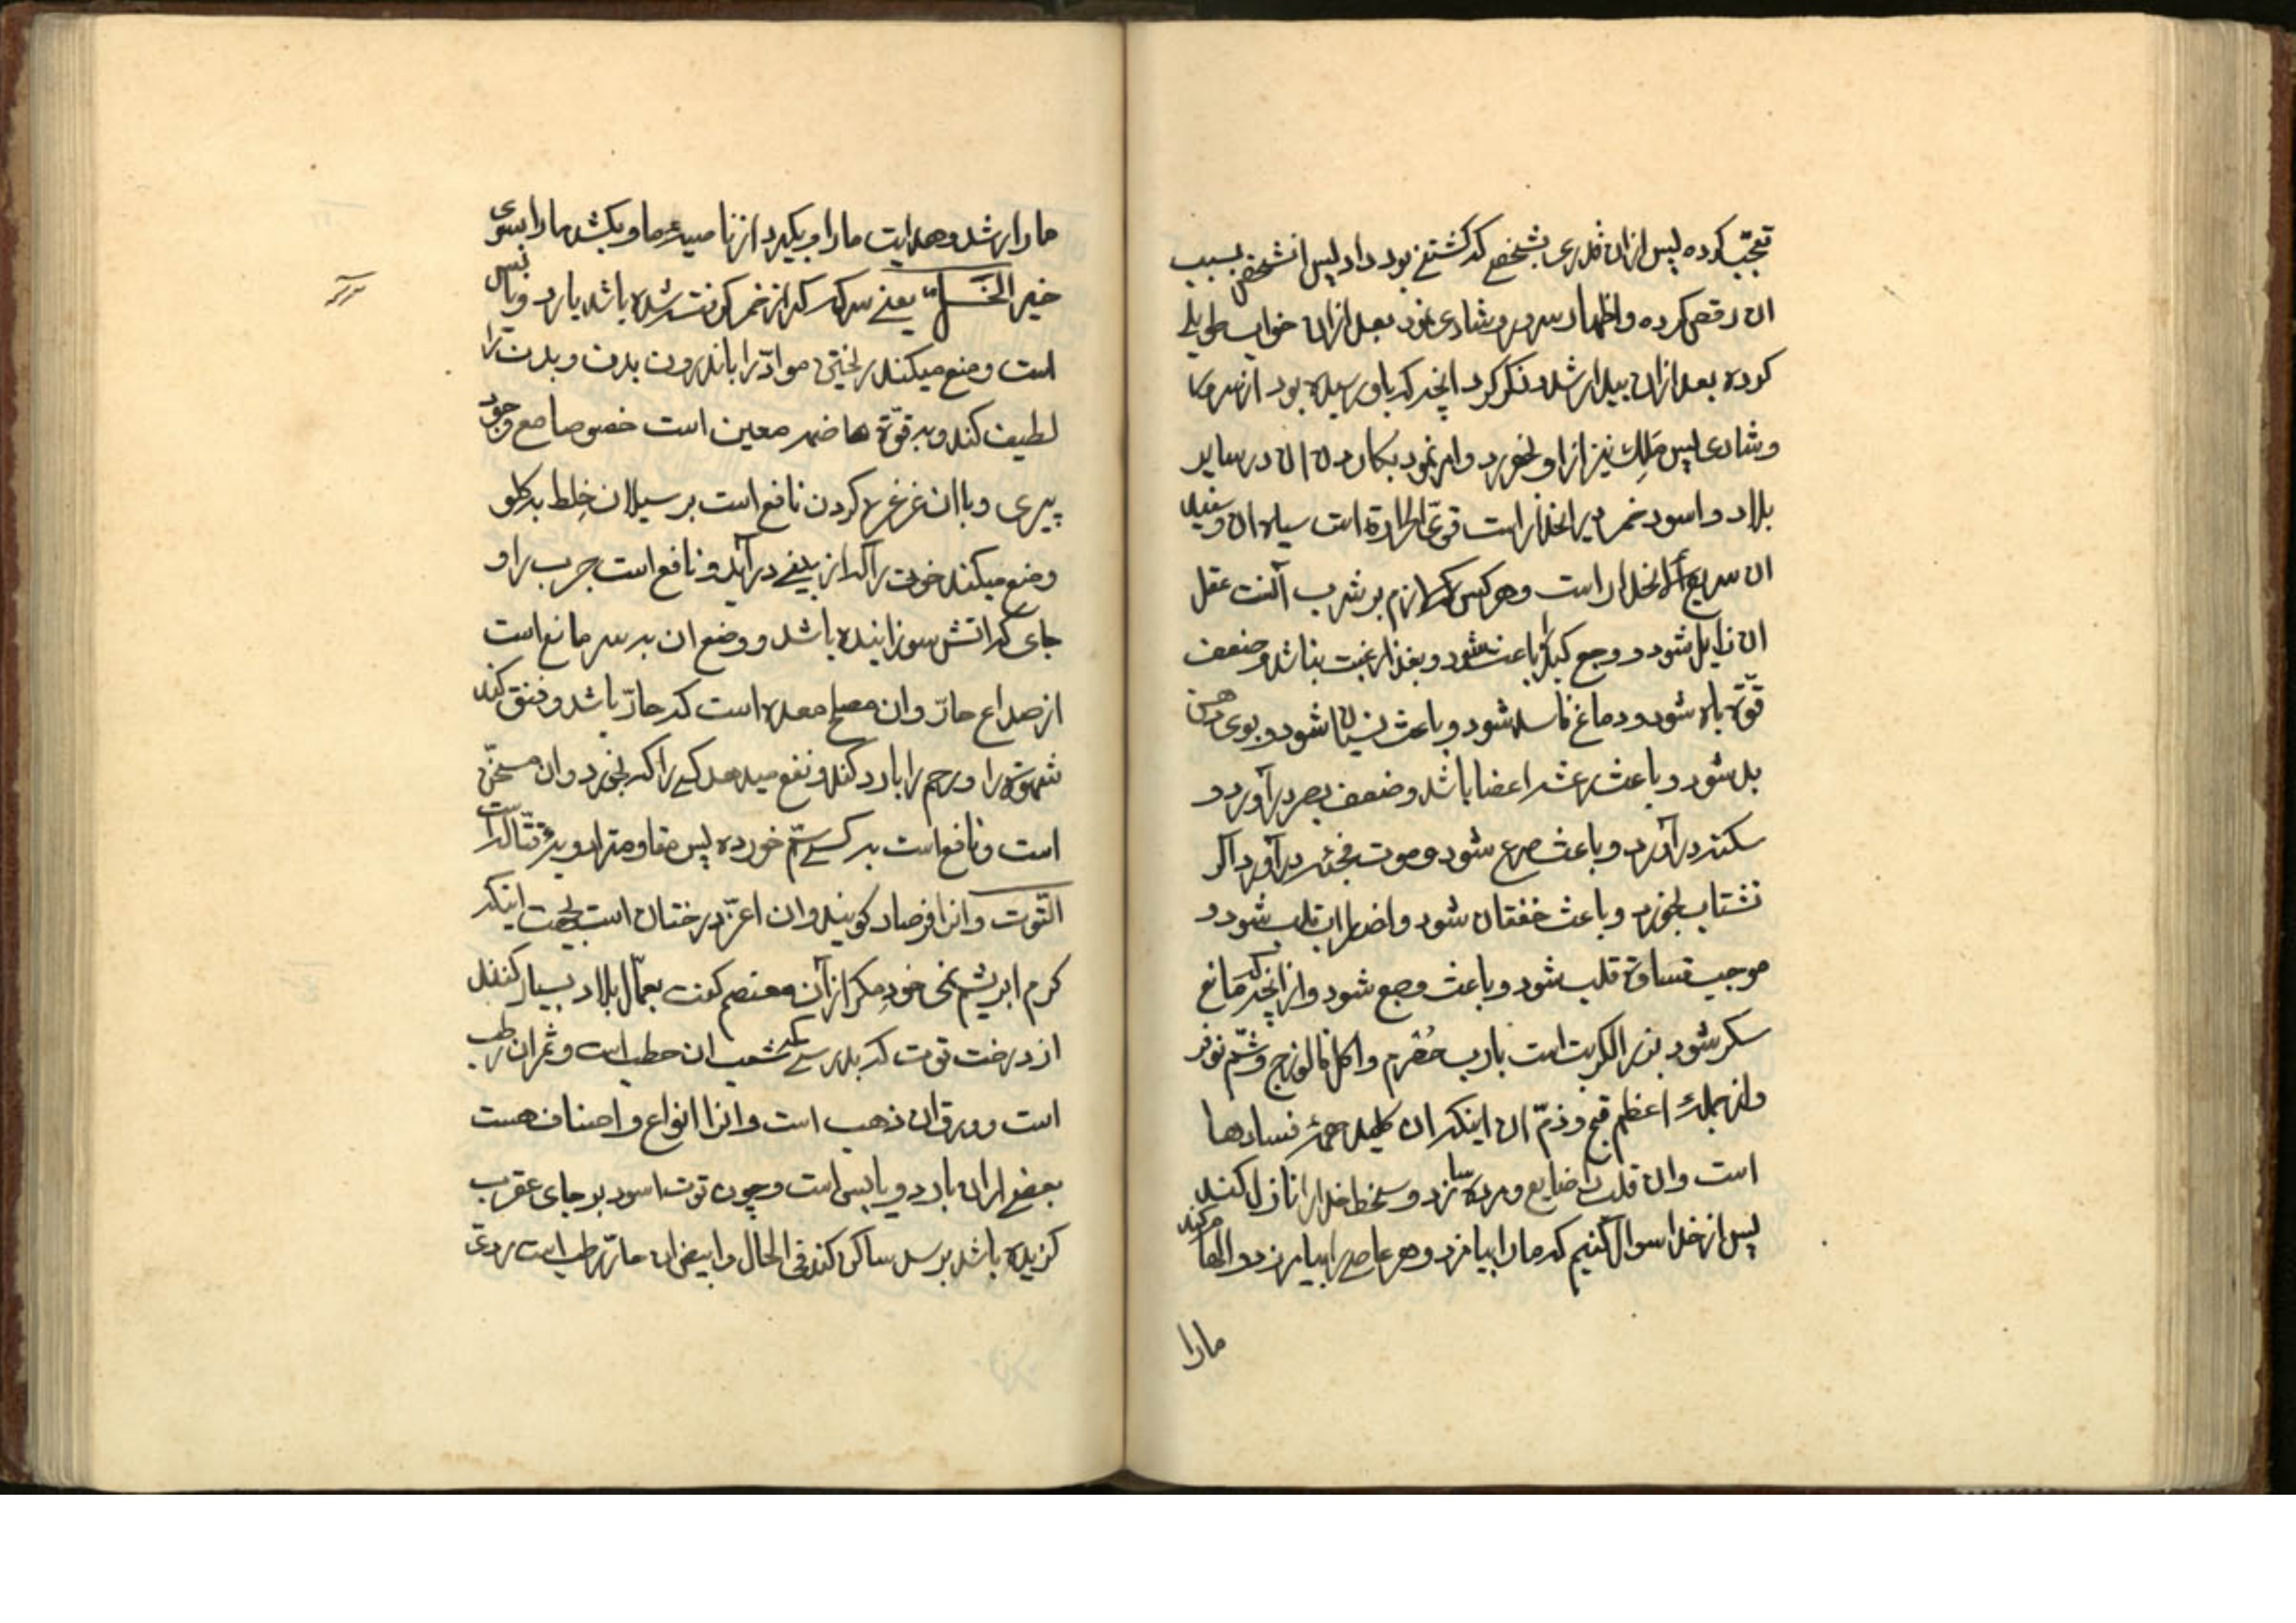 تعجّب کرده پس ازان قدری بشخصی که کشتنی بود داد پس انشخص بسبب
ان رقص کرده و اظهار سرور و شادی نمود بعد ازان خواب طویلی
کرده بعد ازان بیدار شد و ذکر کرد انچه که باو رسیده بود از سرور
و شادی پس ملِک نیز از او بخورد و امر نمود بکاردن ان در سایر
بلاد و اسود خمر دیر انحدار است قویّ الحرارة است سیاه ان و سفید
ان سریع الانحدار است و هر کس که لازم بر شرب آنست عقل
ان زایل شود و وجع کبد را باعث شود و بغذا رغبت نباشد و ضعف
قوّة باه شود و دماغ فاسد شود و باعث نسیان شود و بوی دهن
بد شود و باعث رعشه اعضا باشد و ضعف بصر در آورد و
سکته در آورد و باعث صرع شود و موت فجئه در آورد اگر
نشتاب بخورد و باعث خفقان شود و اضطراب قلب شود و
موجب قساوة قلب شود و باعث وجع شود و از انچه که مانع
سکر شود بزر الکرنب است بارب حُصرم و اکل فالوزج و شمّ نوفر
و از جمله اعظم قبح و ذمّ ان اینکه ان کلید همه فسادها
است و ان قلب را ضایع و مرده سازد و سخط خدا را نازل کند
پس از خدا سوال کنیم که ما را بیامرزد و هر عاصی را بیامرزد و الهام کند
مارا
ما را رشد و هدایت ما را و بگیرد از ناصیه ما و بکشد ما را بسوی
خیر الخَلّ یعنی سرکه که از خمر کرفت شده باشد بارد و یابس
است و منع میکند ریختن موادّ را باندرون بدن و بدن را
لطیف کند و بر قوّة هاضمه معین است خصوصا مع وجود
پیری و با ان غرغره کردن نافع است بر سیلان خِلط به کلو
و منع میکند خون را که از بینی در آید و نافع است جرب را و
جای که اتش سوزاینده باشد و وضع ان بر سر مانع است
از صداع حارّ و ان مصلح معده است که حارّ باشد و فتق کند
شهوة را و رحم را بارد کند و نفع میدهد کسی را که بخورد و ان مسخّن
است و نافع است بر کسی سمّ خورده پس مقاومتر ادویه قتّاله است
التّوت و انرا فرصاد کویند و ان اعزّ درختان است بجهت اینکه
کرم ابریشم نمی خورد مکر از آن معتصم کفت بعمّال بلاد بسیار کنند
از درخت توت که بدرستی که شعب ان حطب است و ثمر ان رطب
است و ورق ان ذهب است و انرا انواع و اصناف هست
بعضی از ان بارد و یابس است و چون توت اسود بر جای عقرب
کزیده باشد برسد ساکن کند فی الحال و ابیض ان حارّ رطب است ردیّ